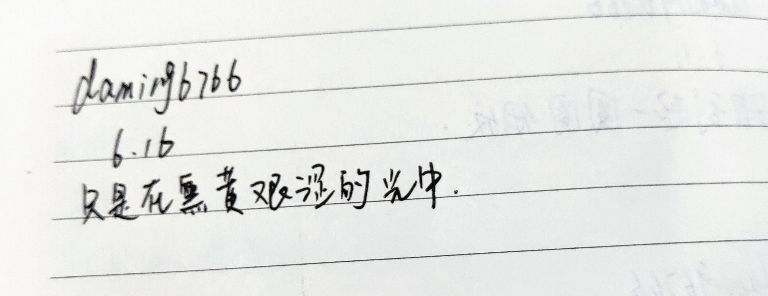 daming6766
6.16
只是在黑黄艰涩的光中.